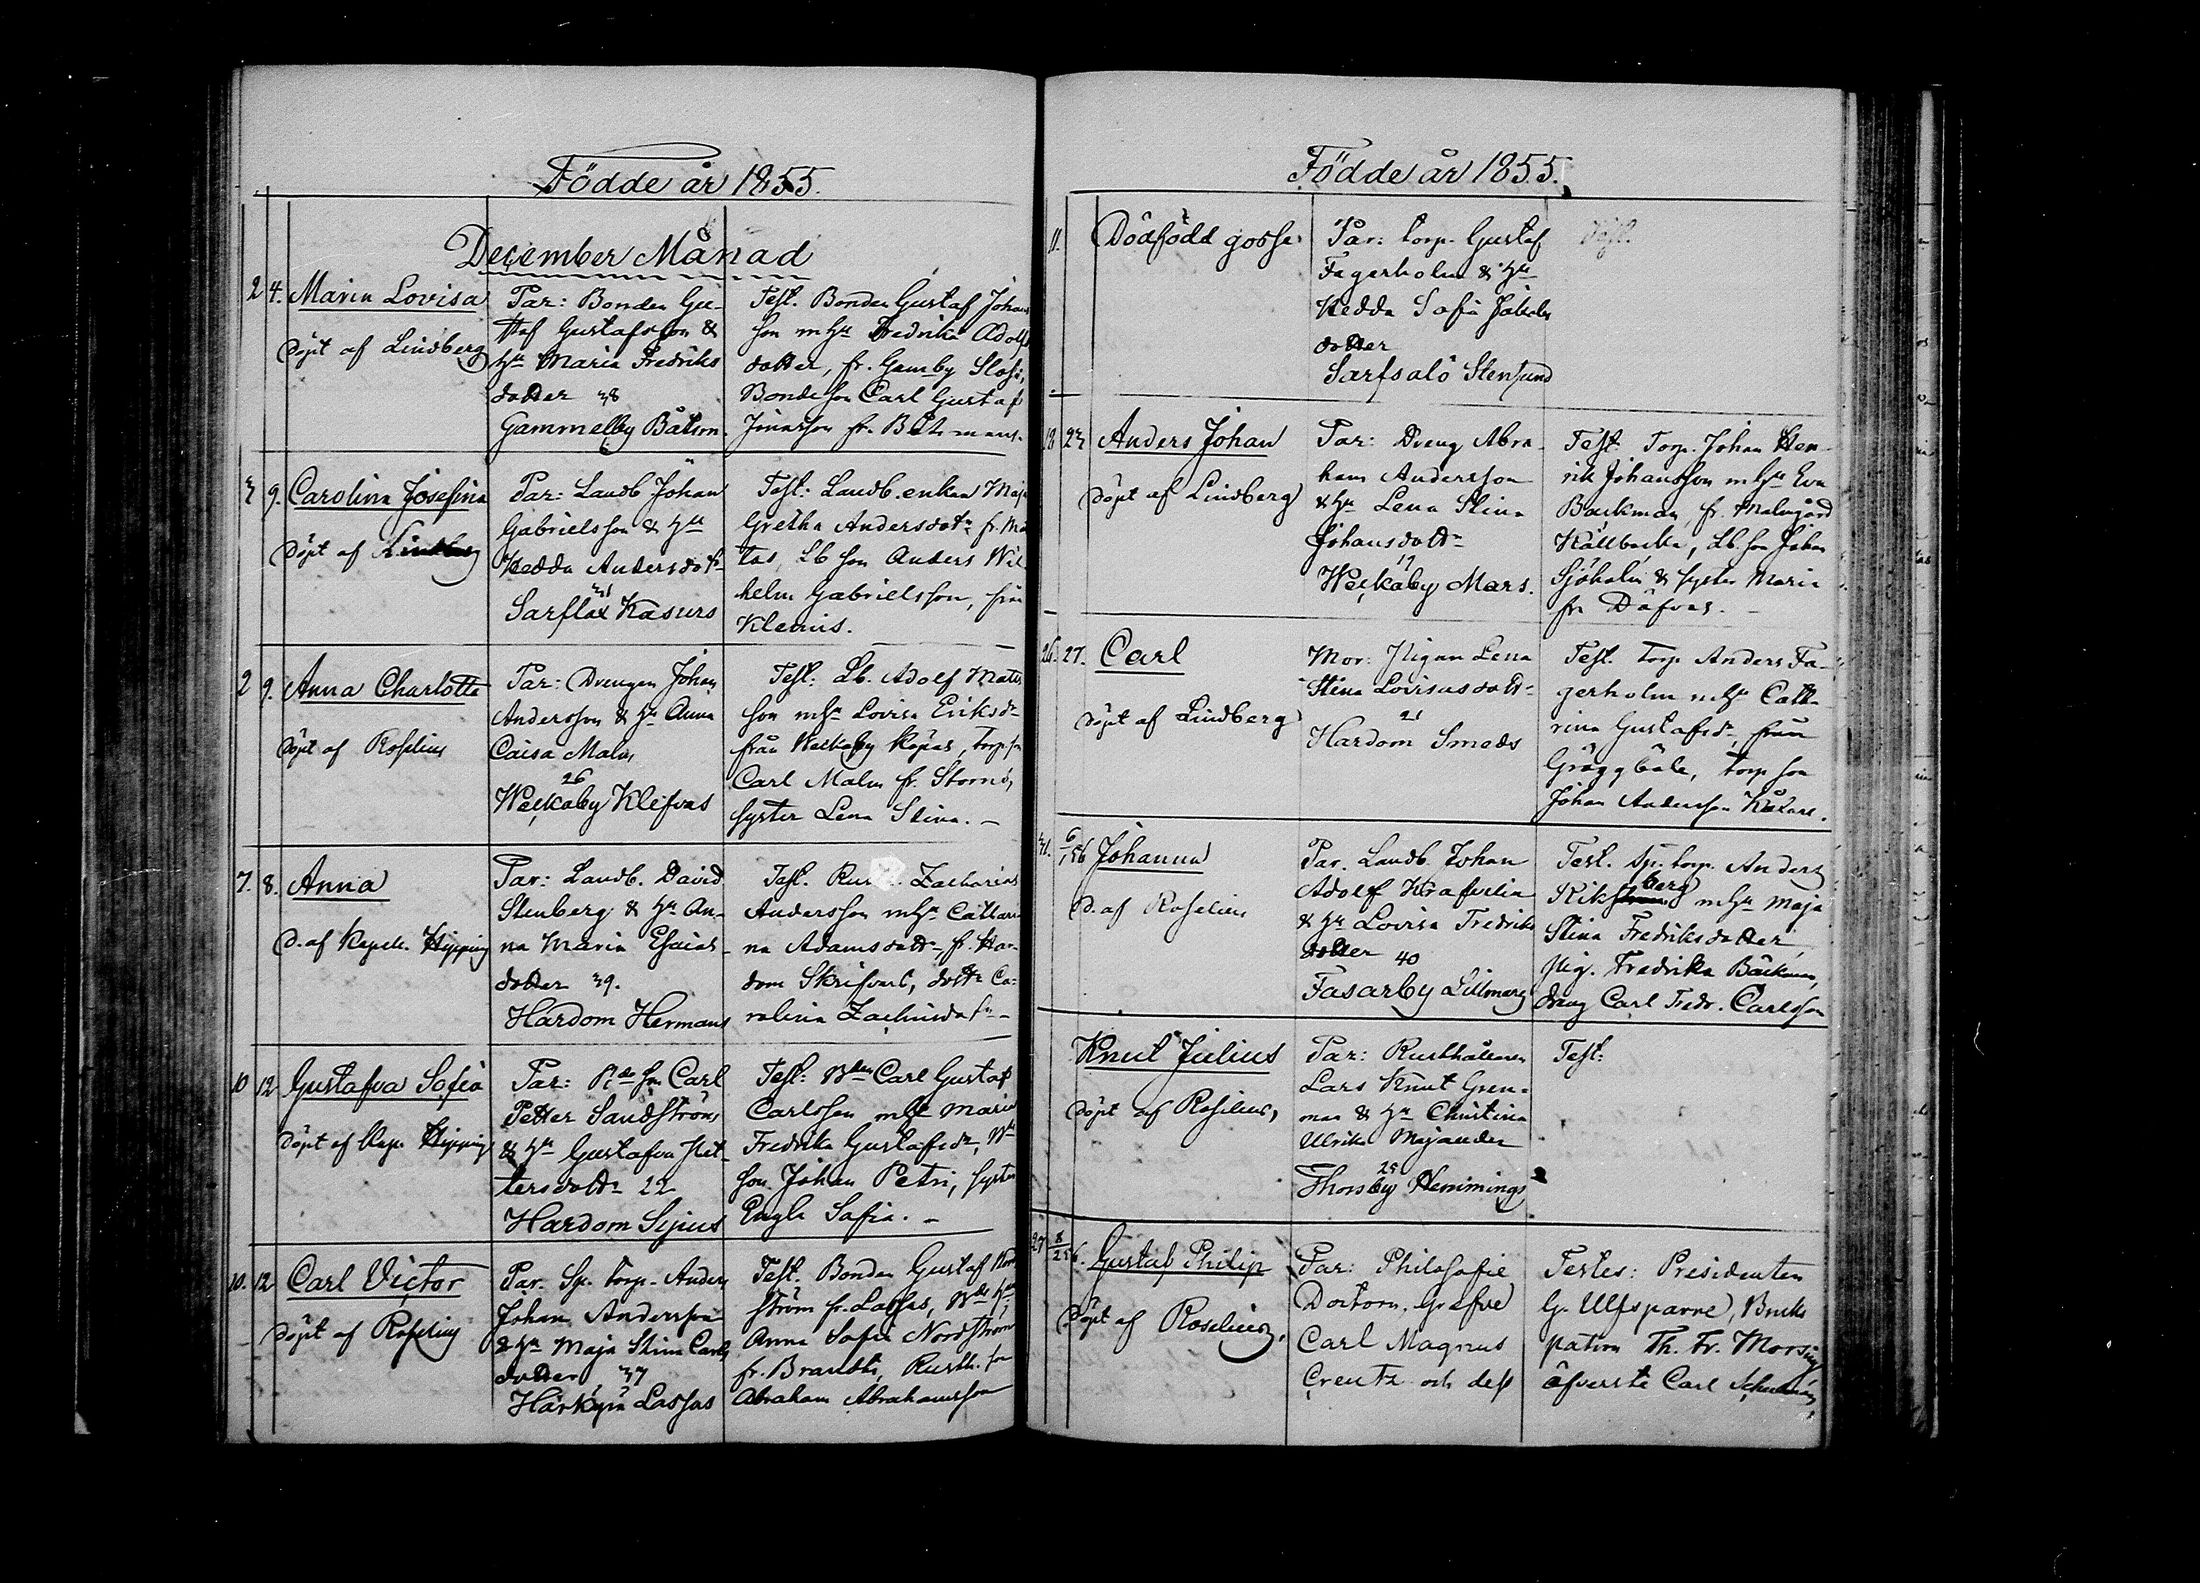 Födde år 1855.
December Månad
2 4. Maria Lovisa
döpt af Lindberg
Par: Bonden Gu-
staf Gustafsson &
hu Maria Fredriks
dotter 38
Gammelby Båtsm.
Test. Bonden Gustaf Johans
son m hu Fredrika Adolfs
dotter, fr. Gamby
Bondeson Carl Gustaf
fr. Båtsmans.
3 9. Carolina Josefina
döpt af
Par: Landb Johan
Gabrielsson & hu
Hedda Andersdotr
31
Sarflax Kasurs
Test: Landb. enkan Maja
Gretha Andersdotr fr.
Lb son Anders Wil
helm Gabrielsson, från
Klemis.
2 9. Anna Charlotta
döpt af Roselius
Par: Drengen Johan
Andersson & hu Anna
Caisa Malm
26
Weckoby Klefvas
Test: Lb. Adolf Mats
son m hu Lovisa Eriksdr
från Weckoby torp son
Carl Malm fr.
syster Lena Stina. –
7. 8. Anna
d. af Kapell. Hipping
Par: Landb. David
Stenberg & hu An-
na Maria Esaias
dotter 39.
Hardom Hermans
Test. Zacharias
Andersson m hu Cathari
na Adamsdotr, fr. Har-
dom Skrifvars, dottr Ca-
rolina
10 12 Gustafva Sofia
döpt af Kap. Hipping
Par: son Carl
Petter Sandström
& hu Gustafva Pet-
tersdottr 22
Hardom Sijus
Test: Bden Carl Gustaf
Carlsson m hu Maria
Fredrika Gustafsdr,
son Johan Petri, syster
Engla Sofia. –
10. 12 Carl Victor
döpt af Roselius
Par. Sp. Torp. Anders
Johan Andersson
& hu Maja Stina Carls
dotter, 37
Härkepä Lassas
Test. Bonden Gustaf Nord
ström fr. Lassas,
Anna Sofia Nordström
fr. Brandts, Rusth. son
Abraham Abrahamsson
Födde år 1855.
11. Dödfödd gosse
Par: torp. Gustaf
Fagerholm & hu
Hedda Sofia Jakobs
dotter
Sarfsalö Stensund
Test.
18 23 Anders Johan
döpt af Lindberg
Par: Dreng Abra
ham Andersson
& hu Lena Stina
Johansdottr
19
Weckoby Mars.
Test. Torp. Johan Hen-
rik Johansson m hu Eva
Backman, fr. Malmgård
Källbacka, Lb. son Johan
Sjöholm & syster Maria
fr Döfvas. –
26. 27. Carl
döpt af Lindberg
Mor: Pigan Lena
Stina Lovisasdottr
21
Hardom Smeds
Test. torp Anders Fa-
gerholm m hu Catha
rina Gustafsdr, från
Gräggböle, torp son
Johan Andersson
31. 6/1 56 Johanna
d. af Roselius
Par. Landb. Johan
Adolf Krafvelin
& hu Lovisa Fredriks
dotter 40
Fasarby Lillmars
Test. Sp. torp. Anders
Rikberg m hu Maja
Stina Fredriksdotter
Pig. Fredrika Bäckman,
dreng Carl Fredr. Carlsson
Knut Julius
döpt af Roselius,
Par: Rusthållaren
Lars Knut Gren-
man & hu Christina
Ulrika Majander
25
Thorsby Hemmings
Test:
27 8/2 56. Gustaf Philip
döpt af Roselius,
Par: Philosofie
Doctorn, Grefve
Carl Magnus
Creutz och dess
Testes: Presidenten
Gr. Ulfsparre, Bruks
patron Th. Fr.
öfverste Carl